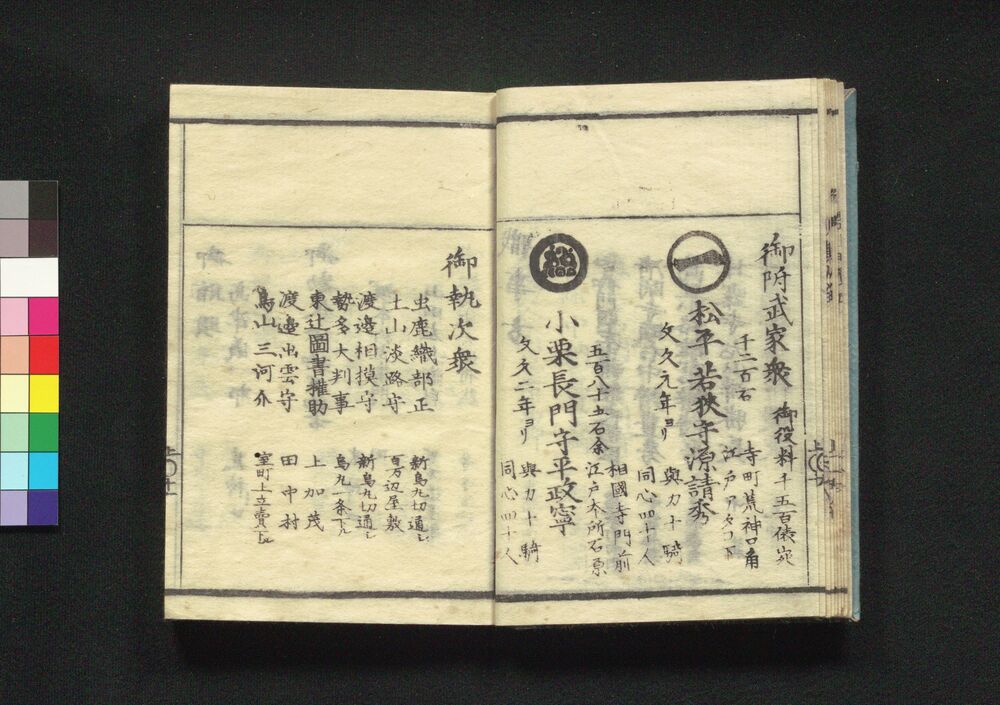 御附武家衆 御役料千五百俵宛
千二百石 寺町荒神口角
江戸アタコ下
松平若狭守源請秀
文久元年ヨリ 與力十騎
同心四十人
相國寺門前
五百八十五石余 江戸本所石原
小栗長門守平政寧
文久二年ヨリ 與力十騎
同心四十人
御執次衆
虫鹿織部正 新烏丸切通シ
土山淡路守 百万辺屋敷
渡邉相摸守 新烏丸切通シ
勢多大判事 烏丸一条下ル
東辻圖書権助 上加茂
渡邉出雲守 田中村
鳥山三河介 室町上立賣下ル